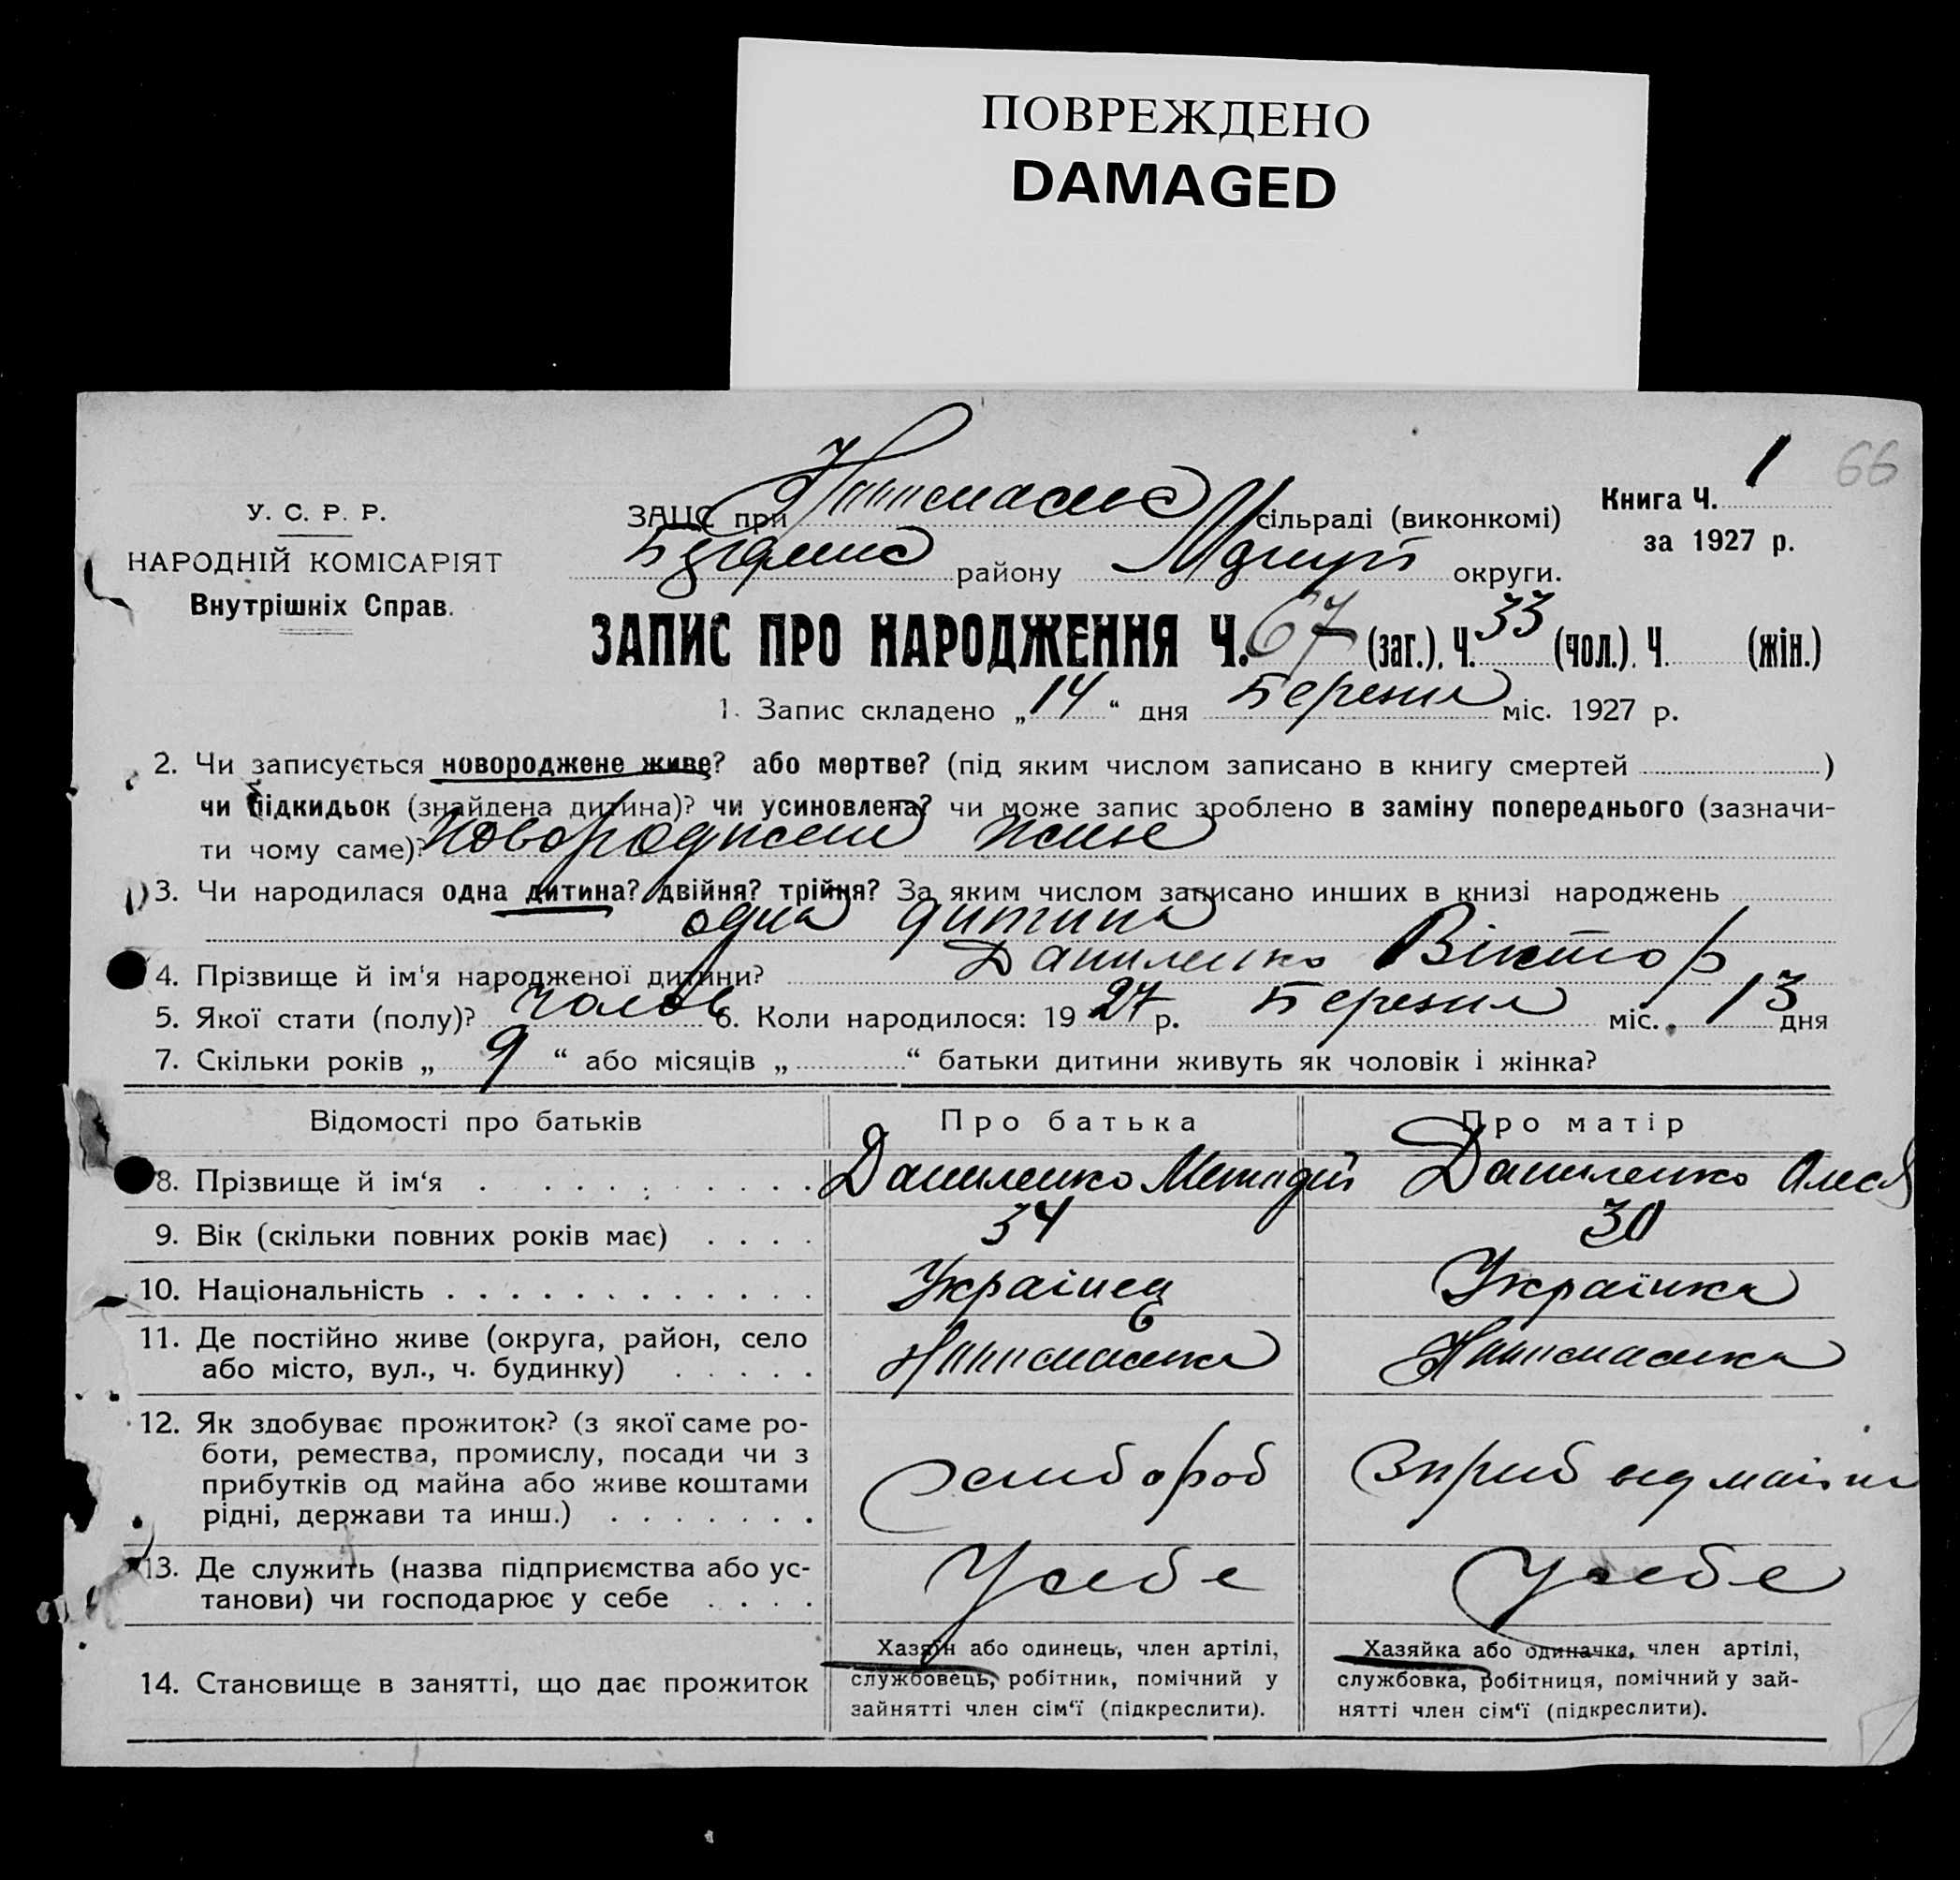 ПОВРЕЖДЕНО
DAMAGED
66
У. С. Р. Р.
НАРОДНІЙ КОМІСАРІЯТ
Внутрішніх Справ.
ЗАЦС при сільраді (виконкомі)
району округи.
Книга Ч. 1
за 1927 р.
ЗАПИС ПРО НАРОДЖЕННЯ Ч. 67 (заг.). Ч. 33 (чол.). Ч. (жін.)
1. Запис складено „14“ дня Березня міс. 1927 р.
2. Чи записується новороджене живе? або мертве? (під яким числом записано в книгу смертей )
чи підкидьок (знайдена дитина)? чи усиновлена? чи може запис зроблено в заміну попереднього (зазначи-
ти чому саме)? новороджене живе
3. Чи народилася одна дитина? двійня? трійня? За яким числом записано инших в книзі народжень
одна дитина
4. Прізвище й ім'я народженої дитини? Даниленко Віктор
5. Якої стати (полу)? чолов 6. Коли народилося: 1927 р. Березня міс. 13 дня
7. Скільки років „9“ або місяців „ “ батьки дитини живуть як чоловік і жінка?
Відомості про батьків Про батька Про матір
8. Прізвище й ім'я Даниленко Методій Даниленко Олеся
9. Вік (скільки повних років має) 34 30
10. Національність Українец Українка
11. Де постійно живе (округа, район, село
або місто, вул., ч. будинку)
12. Як здобуває прожиток? (з якої саме ро-
боти, ремества, промислу, посади чи з
прибутків од майна або живе коштами
рідні, держави та инш.) хлібороб з приб від майна
13. Де служить (назва підприємства або ус-
танови) чи господарює у себе У себе У себе
14. Становище в занятті, що дає прожиток
Хазяїн або одинець, член артілі,
службовець, робітник, помічний у
зайнятті член сім'ї (підкреслити).
Хазяйка або одиначка, член артілі,
службовка, робітниця, помічний у зай-
нятті член сім'ї (підкреслити).